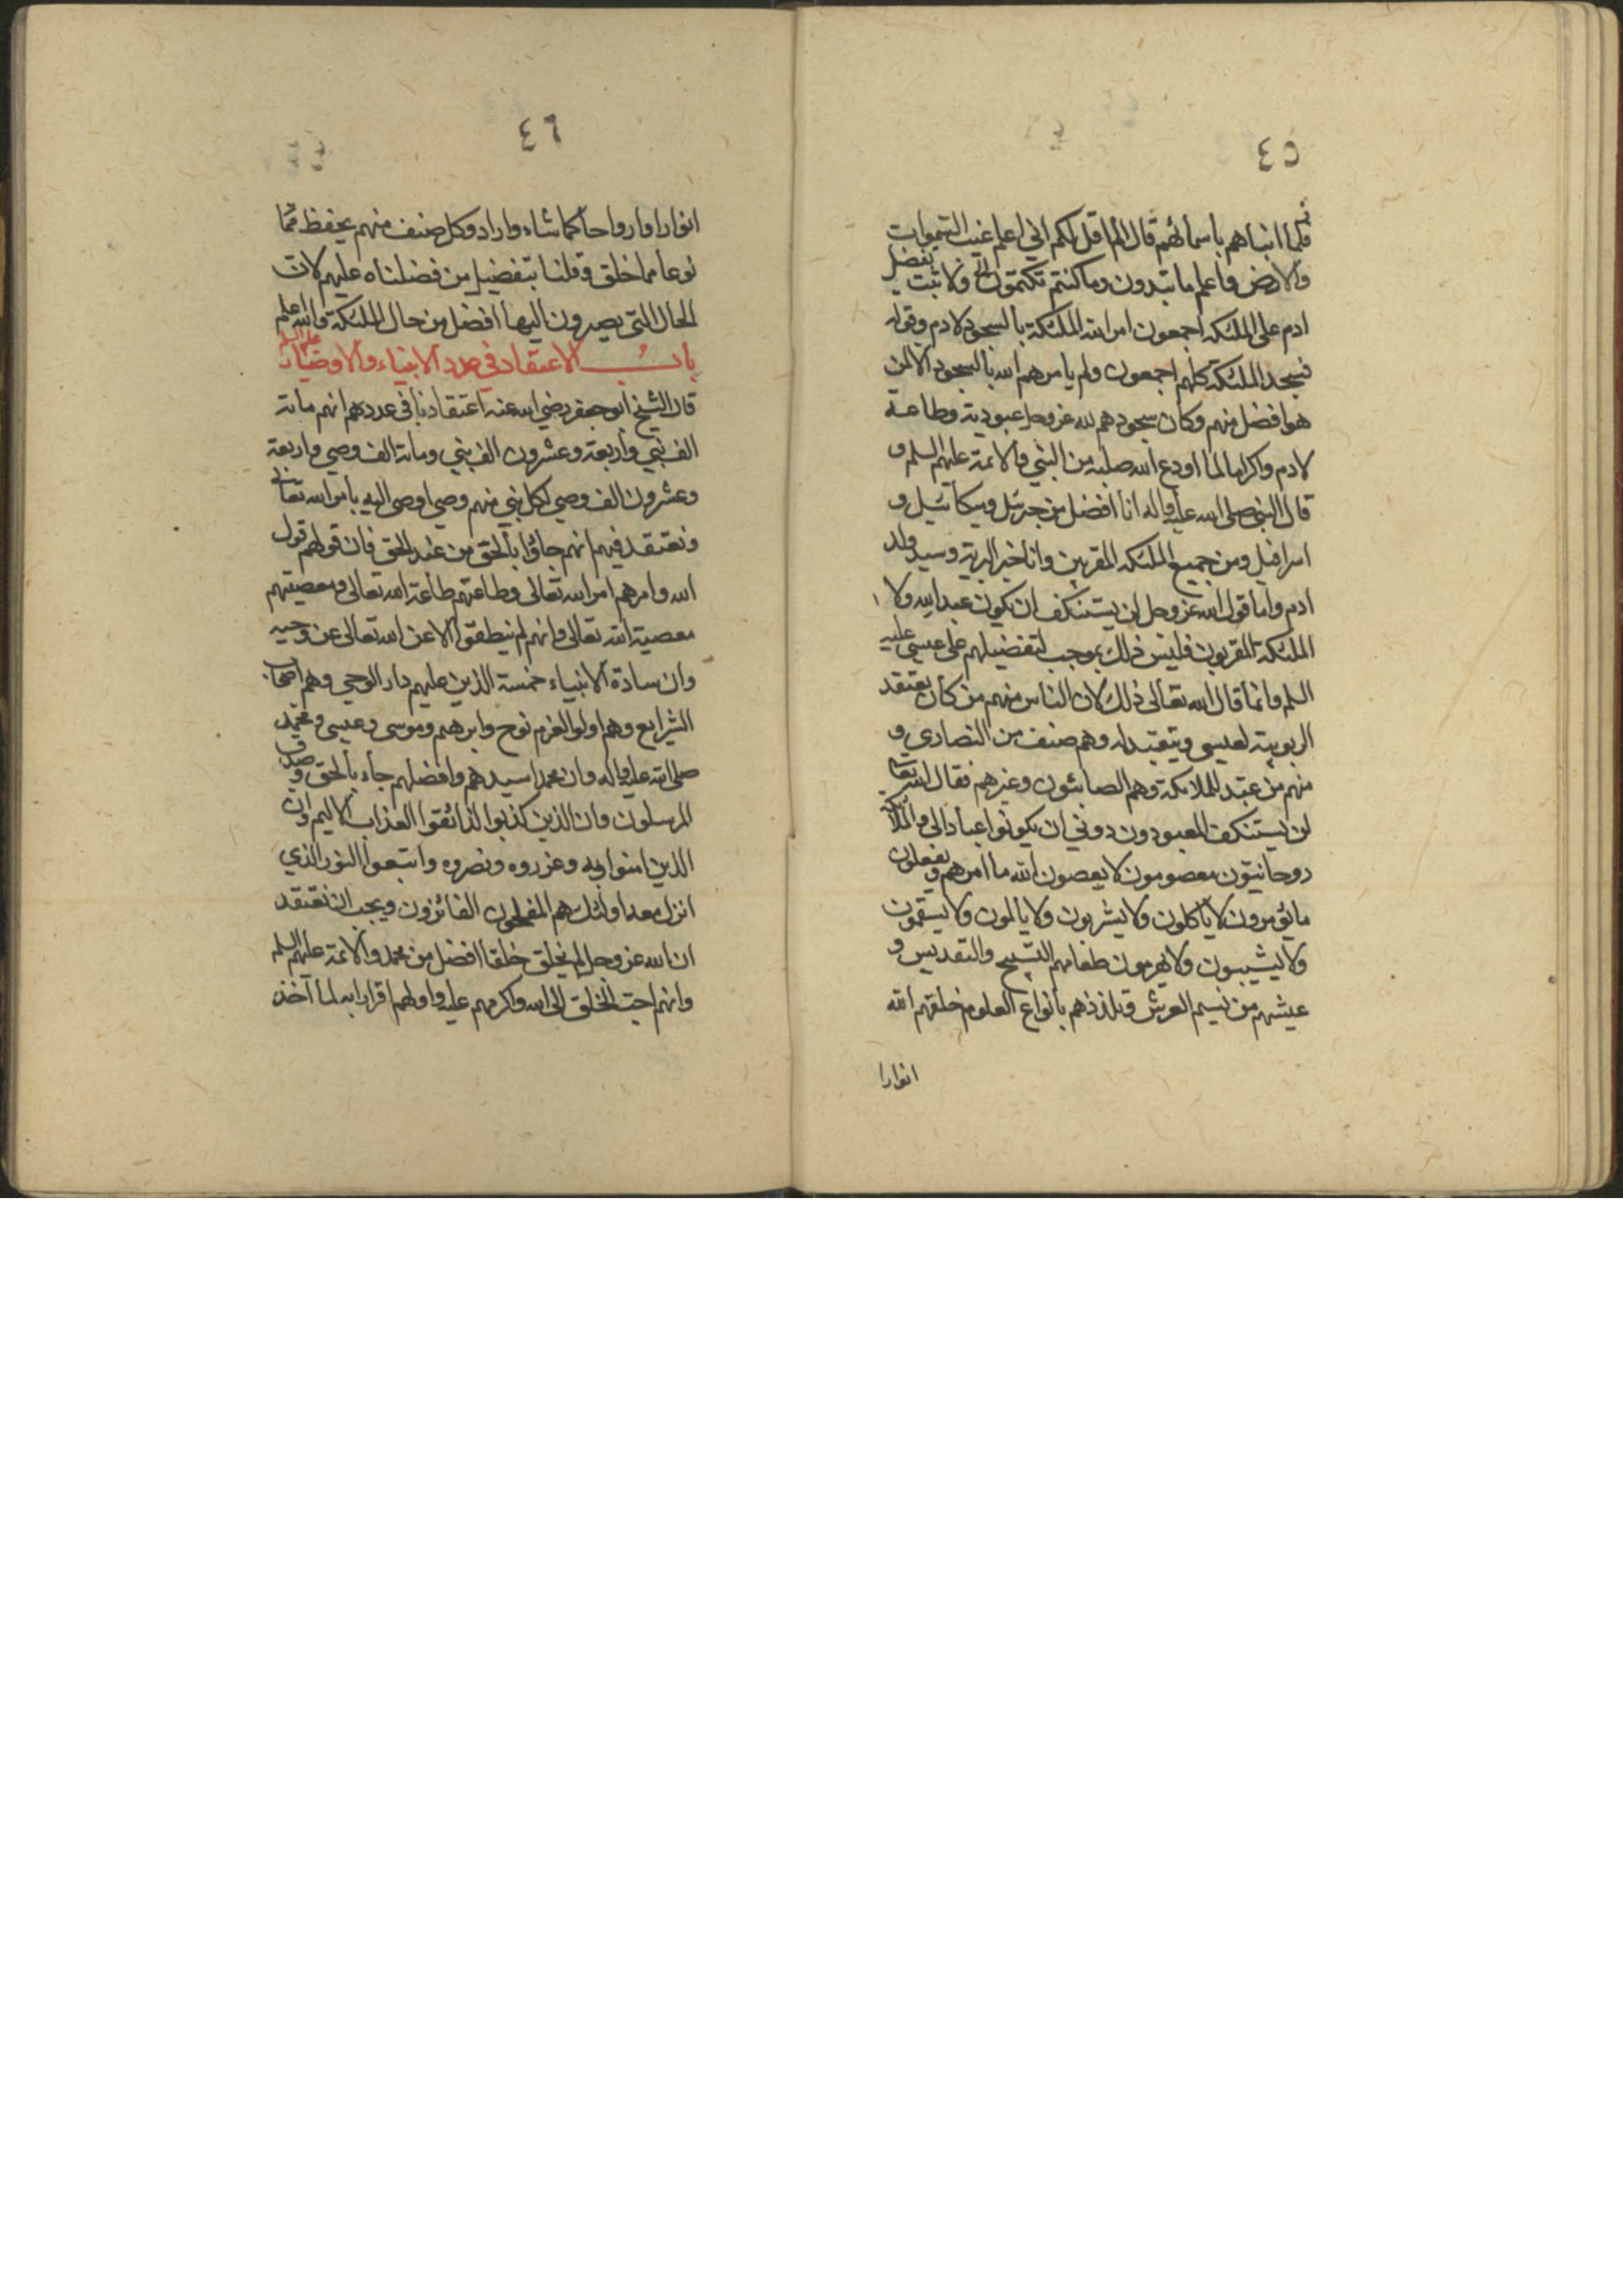 ٤٥
فلما انباهم باسمائهم قال الم اقل لكم اني اعلم غيب السموات
والارض واعلم ما تبدون وما كنتم تكتمون ولا ثبت تفضيل
ادم على الملئكة اجمعون امر الله الملئكة بالسجود لادم وقوله
فسجد الملئكة كلهم اجمعون ولم يامرهم الله بالسجود الا لمن
هو افضل منهم وكان سجودهم لله عز وجل عبودية وطاعة
لادم واكراما لما اودع الله صلبه من النبي والائمة عليهم السلم و
قال النبي صلى الله عليه واله انا افضل من جبرئيل وميكائيل و
اسرافيل ومن جميع الملئكة المقربين وانا خير البرية وسيد ولد
ادم واما قول الله عز وجل لن يستنكف ان يكون عبدا لله ولا
الملئكة المقربون فليس ذلك بموجب لتفضيلهم على عيسى عليه
السلم وانما قال الله تعالى ذلك لان الناس منهم من كان يعتقد
الربوبية لعيسى ويتعبد له وهم صنف من النصارى و
منهم من عبد الملائكة وهم الصائبون وغيرهم فقال الله تعالى
لن يستنكف المعبودون دوني ان يكونوا عبادا لي والملائكة
روحانيون معصومون لا يعصون الله ما امرهم ويفعلون
ما يؤمرون لا ياكلون ولا يشربون ولا يالمون ولا يسقمون
ولا يشيبون ولا يهرمون طعامهم التسبيح والتقديس و
عيشهم من نسيم العرش وتلذذهم بانواع العلوم خلقهم الله
انوارا
٤٦
انوارا وارواحا كما شاء واراد وكل صنف منهم يحفظ مما
نوعا مما خلق وقلنا بتفضيل من فضلناه عليهم لان
الحال التي يصيرون اليها افضل من حال الملئكة والله اعلم
باب الاعتقاد في عدد الانبياء والاوصياء عليهم السلم
قال الشيخ ابو جعفر رضي الله عنه اعتقادنا في عددهم انهم مائة
الف نبي واربعة وعشرون الف نبي ومائة الف وصي واربعة
وعشرون الف وصي لكل نبي منهم وصي اوصى اليه بامر الله تعالى
ونعتقد فيهم انهم جاؤا بالحق من عند الحق فان قولهم قول
الله وامرهم امر الله تعالى وطاعتهم طاعة الله تعالى ومعصيتهم
معصية الله تعالى وانهم لم ينطقوا الا عن الله تعالى عن وحيه
وان سادة الانبياء خمسة الذين عليهم دار الوحي وهم اصحاب
الشرايع وهم اولوا العزم نوح وابرهيم وموسى وعيسى ومحمد
صلى الله عليه واله وان محمدا سيدهم وافضلهم جاء بالحق وصدق
المرسلون وان الذين كذبوا لذائقوا العذاب الاليم وان
الذين امنوا به وعزروه ونصروه واتبعوا النور الذي
انزل معه اولئك هم المفلحون الفائزون ويجب ان نعتقد
ان الله عز وجل لم يخلق خلقا افضل من محمد والائمة عليهم السلم
وانهم احب الخلق الى الله واكرمهم عليه واولهم اقرارا به لما اخذ